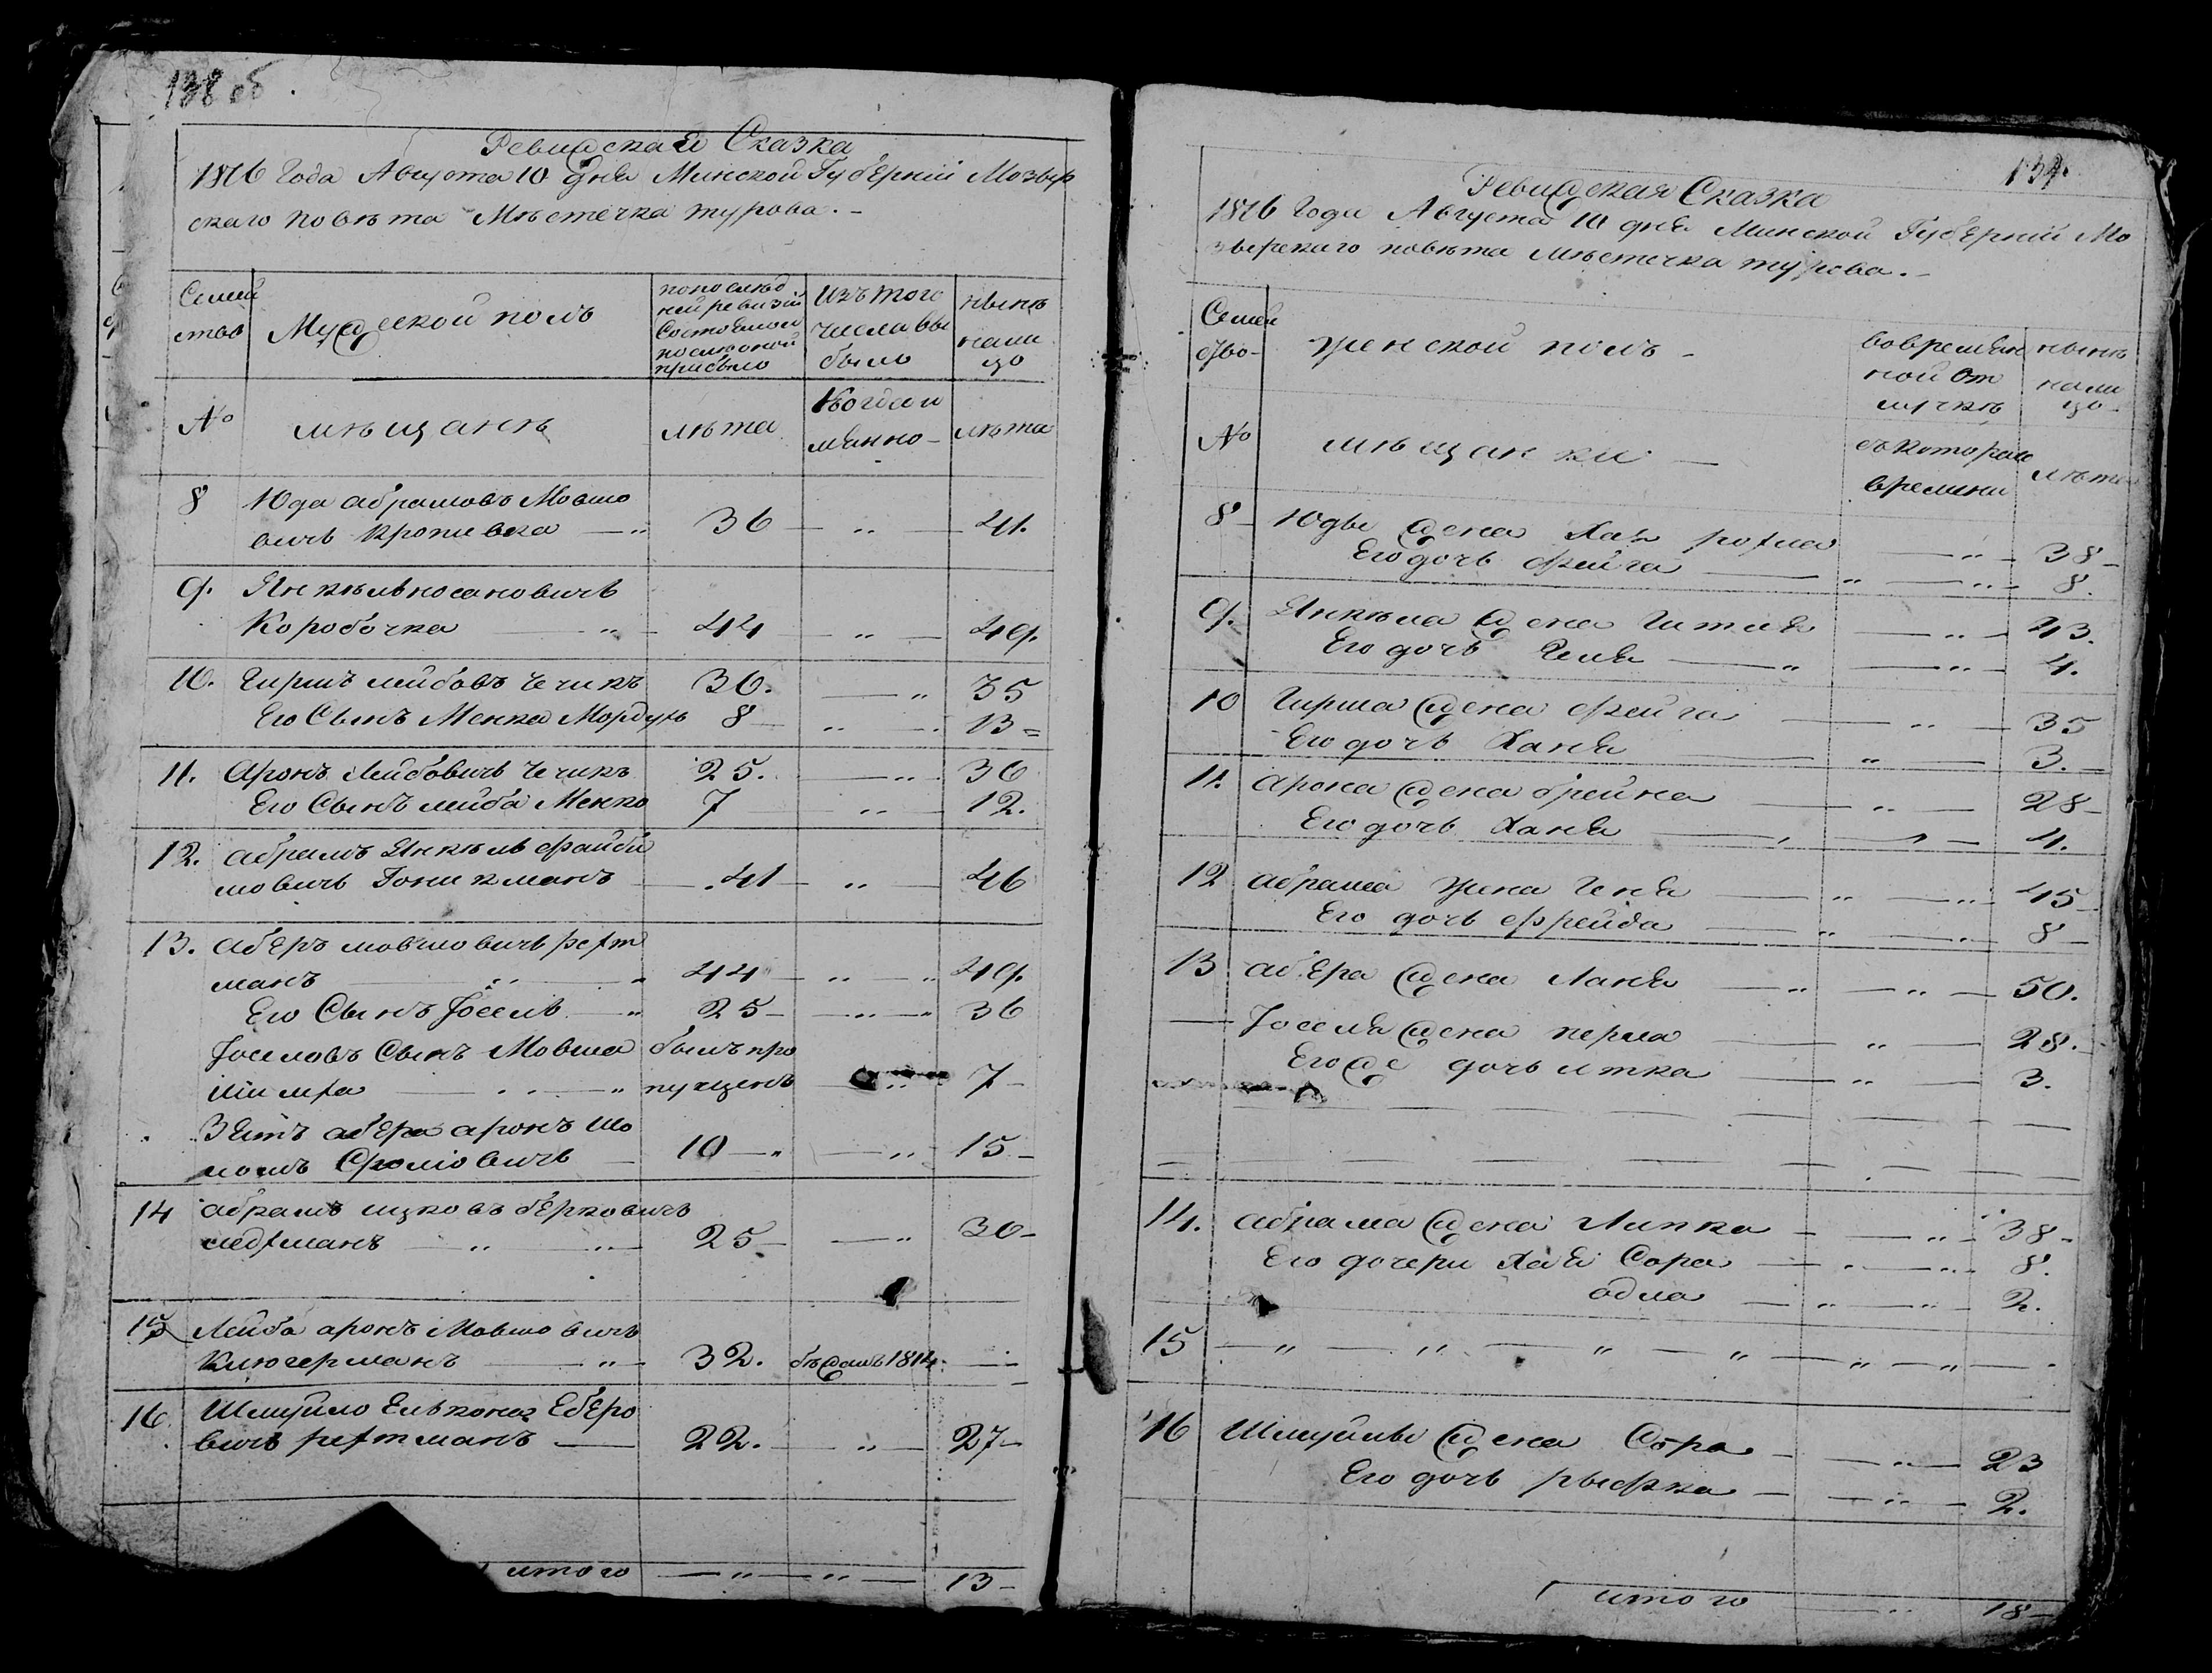 138 об.
Ревижская Сказка
1816 Года Августа 10 дня Минской Губернии Мозыр
скаго повѣта Мѣстечка турова. -
Семей
ства
Мужеской полъ
по послѣд
ней ревизіи
Состояло и
после оной
прибыло
Изъ того
числа вы
было
нынѣ
нали
цо
№
мѣщанѣ
лѣта
Когда и
мянно -
лѣта
8 Юда абрамовъ Мовшо
вичъ кропивка 36 41.
9. Янкѣль носановичъ
Коробочка 44 49.
10. Гиршъ лейбовъ чечикъ 30. 35
Его Сынъ Менка Мордухъ 8 13
11. Аронъ Лейбовичъ чечикъ 25. 30
Его Сынъ лейба Менко 7 12.
12. абрамъ Янкѣль файби
шовичъ Гоникманъ 41 46
13. абѣръ мовшовичъ
манъ 44 49.
Его Сынъ Іосель 25 - 30
Іоселовъ Сынъ Мовша былъ про
пущенъ 7 -
Зять абѣра аронъ Шо
ломъ Фроліовичъ 10 15 -
14 абрамъ ицковъ бѣрковичъ
25 - 30 -
15 Лейба аронъ Мовшовичъ
Клюгерманъ 32. бѣжалъ 1814.
16. Шмуйло Елькона Ебѣро
вичъ 22. 27 -
итого 13 -
139.
Ревижская Сказка
1816 Года Августа 10 дня Минской Губернии Мо
зырскаго повѣта мѣстечка турова. -
Семей
ство -
женской полъ -
во времян
ной от
лучкѣ
нынѣ
нали
цо -
№
мѣщанки -
съ котораго
времяни
лѣта
8 - Юды жена Хая 38 -
Его дочь фейга 8.
9. Янкѣла жена Гитля 43.
Его дочь 4.
10 Гирша жена фейга 35
Его дочь Ханя 3. -
11. Арона жена брейна 28 -
Его дочь Ханя 4.
12 абрама жена Геня 45 -
Его дочь фрейда 8 -
13 абѣра жена Ханя 50.
Іоселя жена перла 28. -
Его же дочь итка 3.
14. абрама жена Липка 38 -
Его дочери Хая Сора 8.
адла 2.
15
16 Шмуйлы жена Сора 23
Его дочь рыфка 2.
итого 18 -